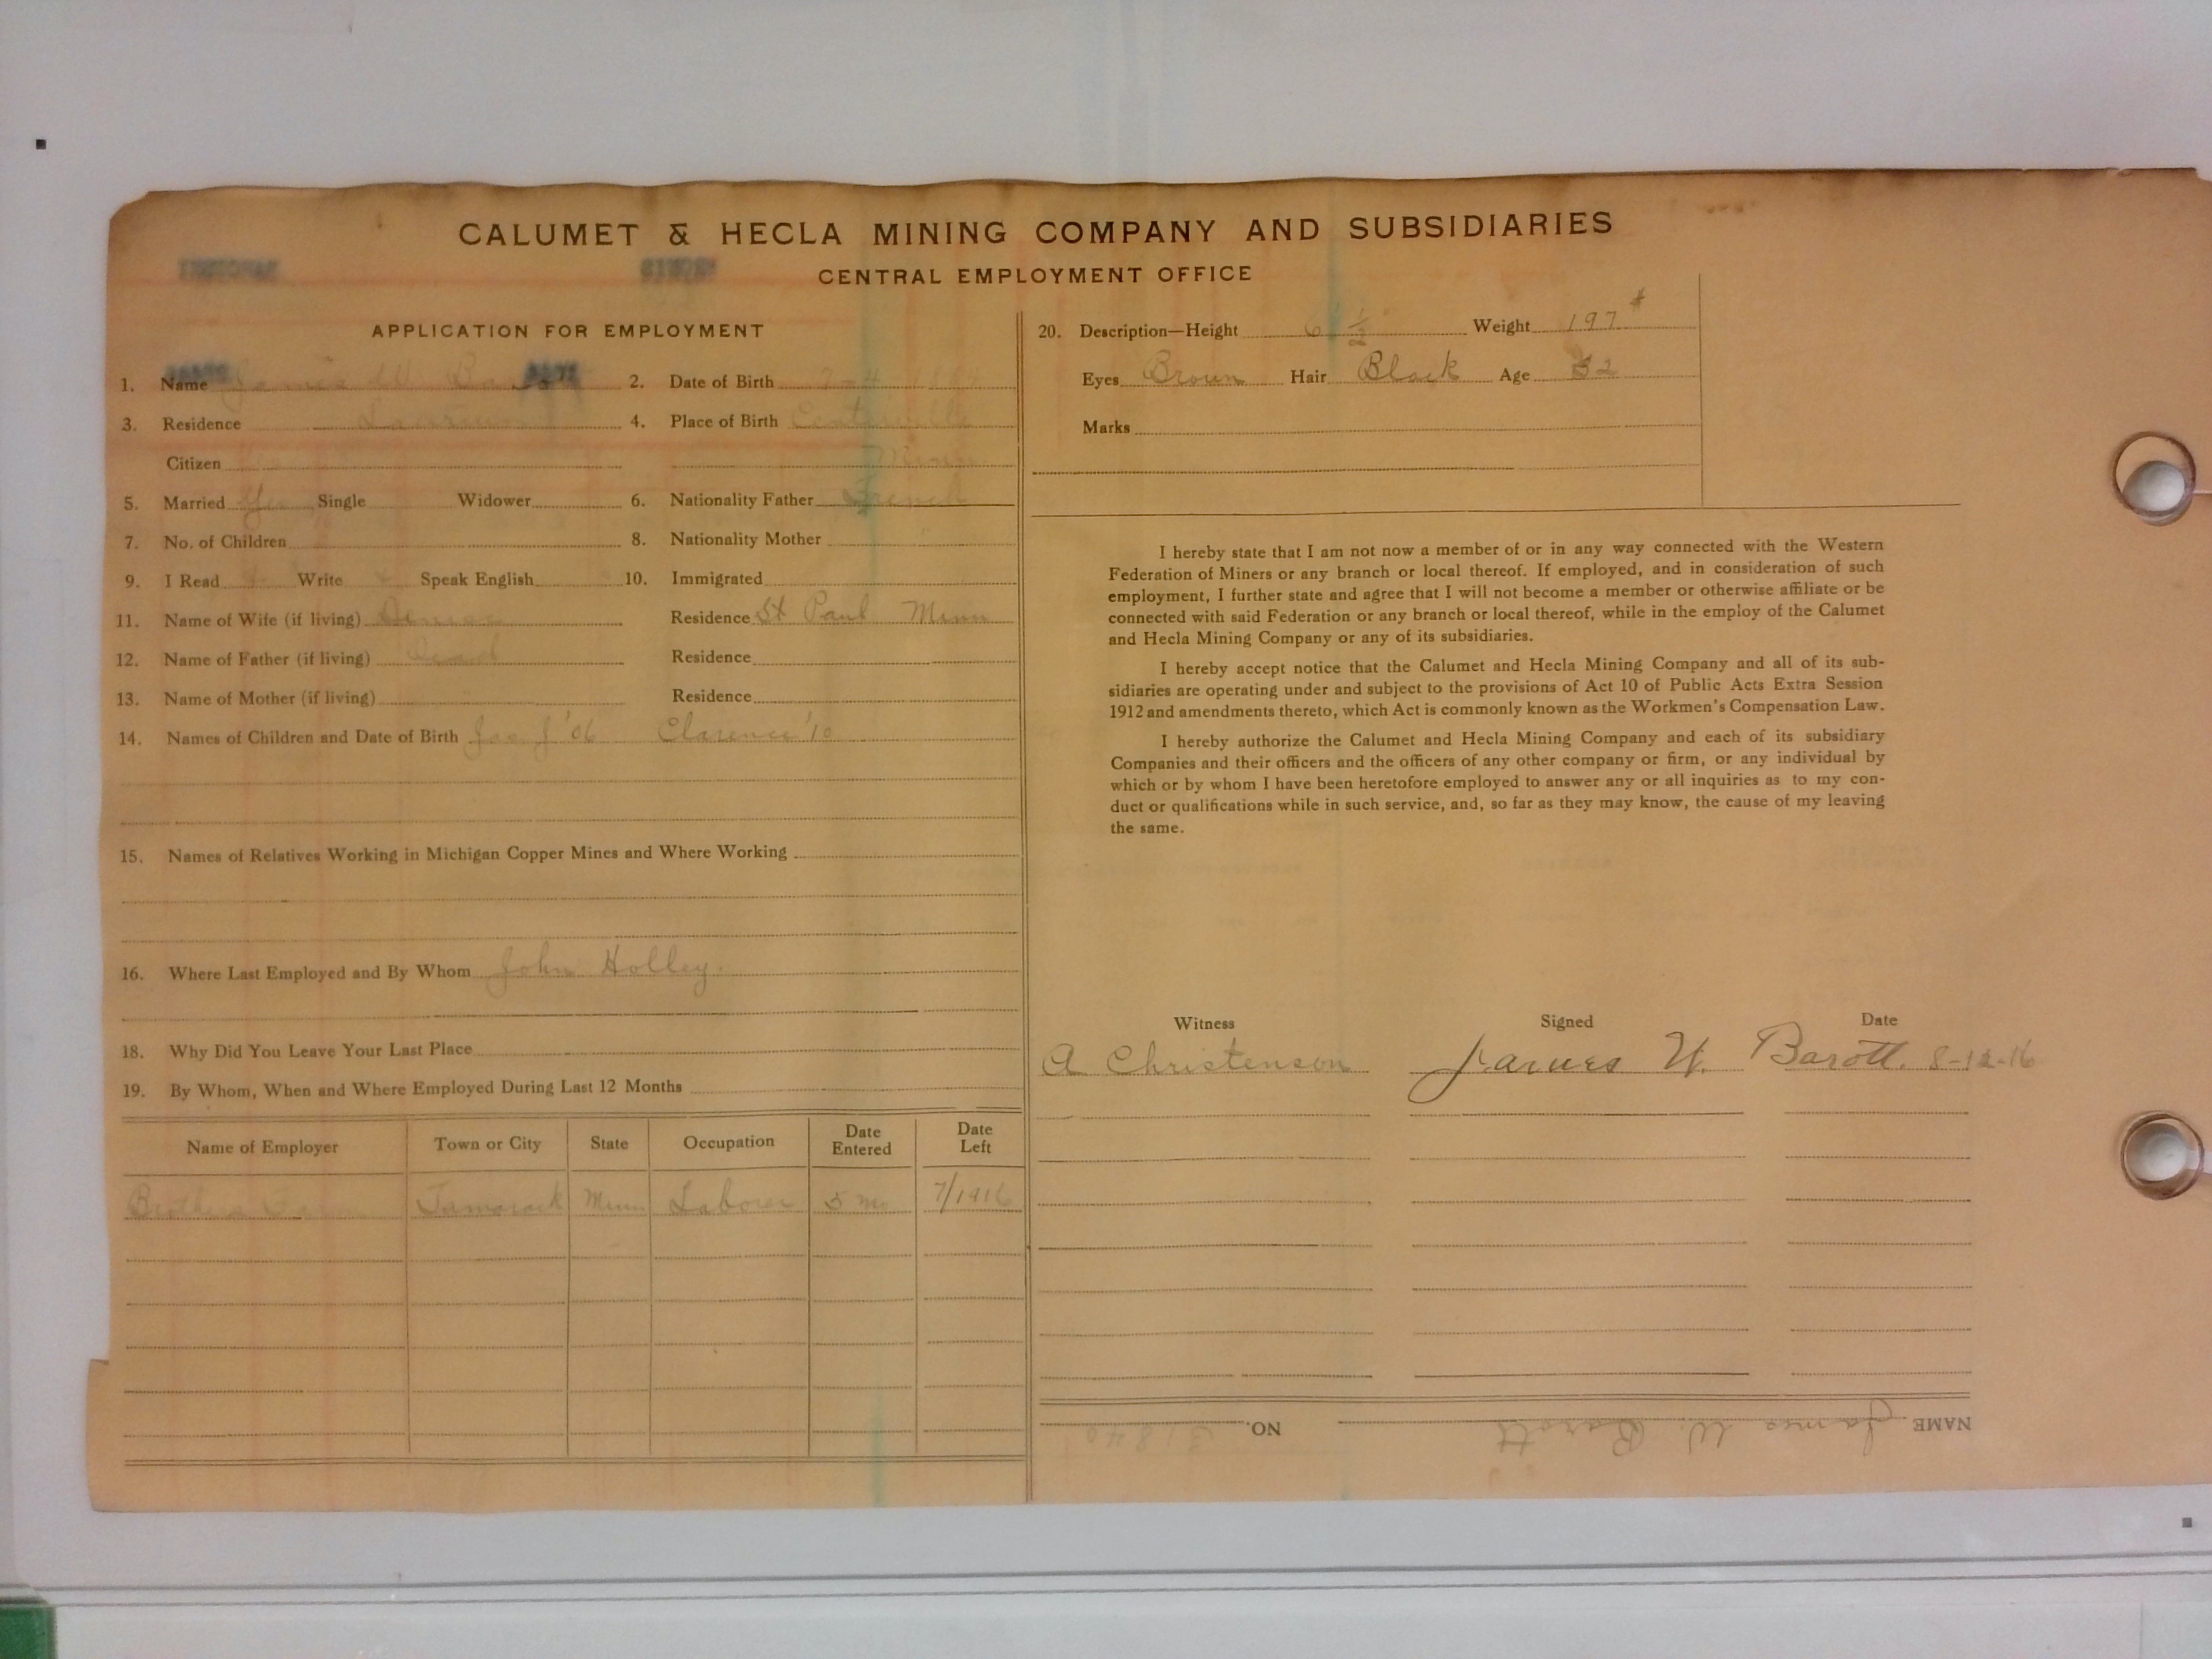 CALUMET & HECLA MINING COMPANY AND SUBSIDIARIES
CENTRAL EMPLOYMENT OFFICE
APPLICATION FOR EMPLOYMENT
1. Name James W. Barott 2. Date of Birth
3. Residence Laurium 4. Place of Birth Centerville
Citizen Minn
5. Married Yes Single Widower 6. Nationality Father French
7. No. of Children 8. Nationality Mother
9. I Read Write Speak English 10. Immigrated
11. Name of Wife (if living) Residence St Paul Minn
12. Name of Father (if living) Dead Residence
13. Name of Mother (if living) Residence
14. Names of Children and Date of Birth Jas J '06 Clarence '10
15. Names of Relatives Working in Michigan Copper Mines and Where Working
16. Where Last Employed and By Whom John Holley.
18. Why Did You Leave Your Last Place
19. By Whom, When and Where Employed During Last 12 Months
Name of Employer Town or City State Occupation Date Entered Date Left
Brothers Farm Tamarack Minn Laborer 5 mo 7/1916
20. Description—Height 6 1/2 Weight 197 #
Eyes Brown Hair Black Age 32
Marks
I hereby state that I am not now a member of or in any way connected with the Western
Federation of Miners or any branch or local thereof. If employed, and in consideration of such
employment, I further state and agree that I will not become a member or otherwise affiliate or be
connected with said Federation or any branch or local thereof, while in the employ of the Calumet
and Hecla Mining Company or any of its subsidiaries.
I hereby accept notice that the Calumet and Hecla Mining Company and all of its sub-
sidiaries are operating under and subject to the provisions of Act 10 of Public Acts Extra Session
1912 and amendments thereto, which Act is commonly known as the Workmen's Compensation Law.
I hereby authorize the Calumet and Hecla Mining Company and each of its subsidiary
Companies and their officers and the officers of any other company or firm, or any individual by
which or by whom I have been heretofore employed to answer any or all inquiries as to my con-
duct or qualifications while in such service, and, so far as they may know, the cause of my leaving
the same.
Witness Signed Date
A Christenson James W. Barott. 8-12-16
NAME James W. Barott NO. 31840